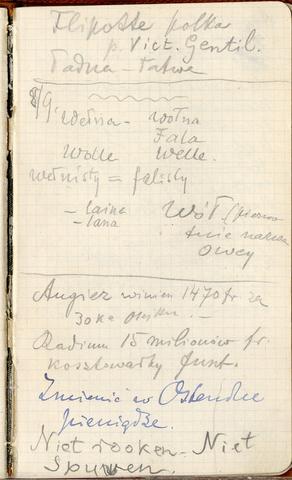 Flipotte polka
p. Vict. Gentil.
Ładna - łatwa
8/9. Wełna - wołna
Fala
Wolle Welle.
wełnisty = falisty
- laina
- lana
Wół (pierwo
tnie
owcy
Angiez winien 1470 fr. za
30 kc
Radium 15 milionów fr.
kosztowałby funt.
Zmienić w Ostendzie
pieniądze.
Niet rooken - Niet
Spuwen.